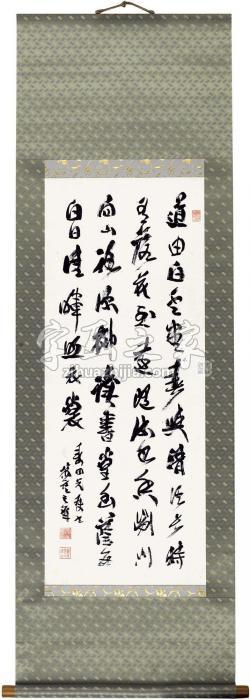 道由白雲盡春與清溪長時
有落花至遠隨流水香閑門
向山路深柳讀書堂幽蔭每
白日清輝照衣裳